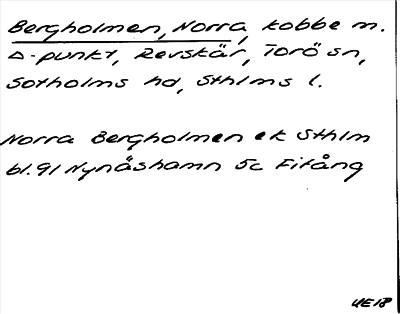 Bergholmen, Norra, kobbe m.
△-punkt, Revskär, Torö sn,
Sotholms hd, Sthlms l.
Norra Bergholmen ek Sthlm
bl. 91 Nynäshamn 5c Fifång
UE18